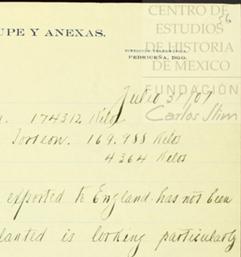 CENTRO DE
ESTUDIOS
DE HISTORIA
DE MEXICO
FUNDACIÓN
Carlos Slim
56
UPE Y ANEXAS.
DIRECCION TELEGRAFICA,
PEDRICEÑA, DGO.
Julio 31/07
174312 Kilos
Torreon. 169.988 Kilos
4364 Kilos
exported to England has not been
lanted is looking particularly